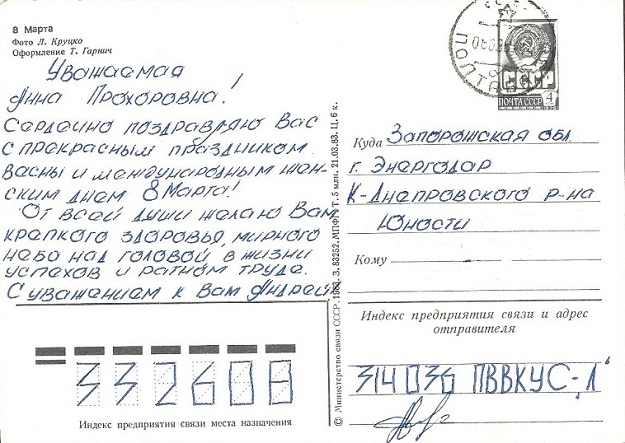 8 Марта
Фото Л. Круцко
Оформление Т. Гаркич
Уважаемая
Анна Прохоровна!
Сердечно поздравляю Вас
с прекрасным праздником
васны и международным жен-
ским днем 8 Марта!
От всей души желаю Вам
крепкого здоровья, мирного
небо над головой в жизни
успехов и ратном труде.
С уважением к Вам Андрей
Индекс предприятия связи места назначения
332608
© Министерство связи СССР, 1983. З. 83252. МПФГ. Т. 5 млн. 21.03.83. Ц. 6 к.
ПОЛТАВА
ПОЧТА СССР 4
Куда Запорожская обл
г. Энергодар
К-Днепровского р-на
Юности
Кому
Индекс предприятия связи и адрес
отправителя
314036 ПВВКУС-"Л"